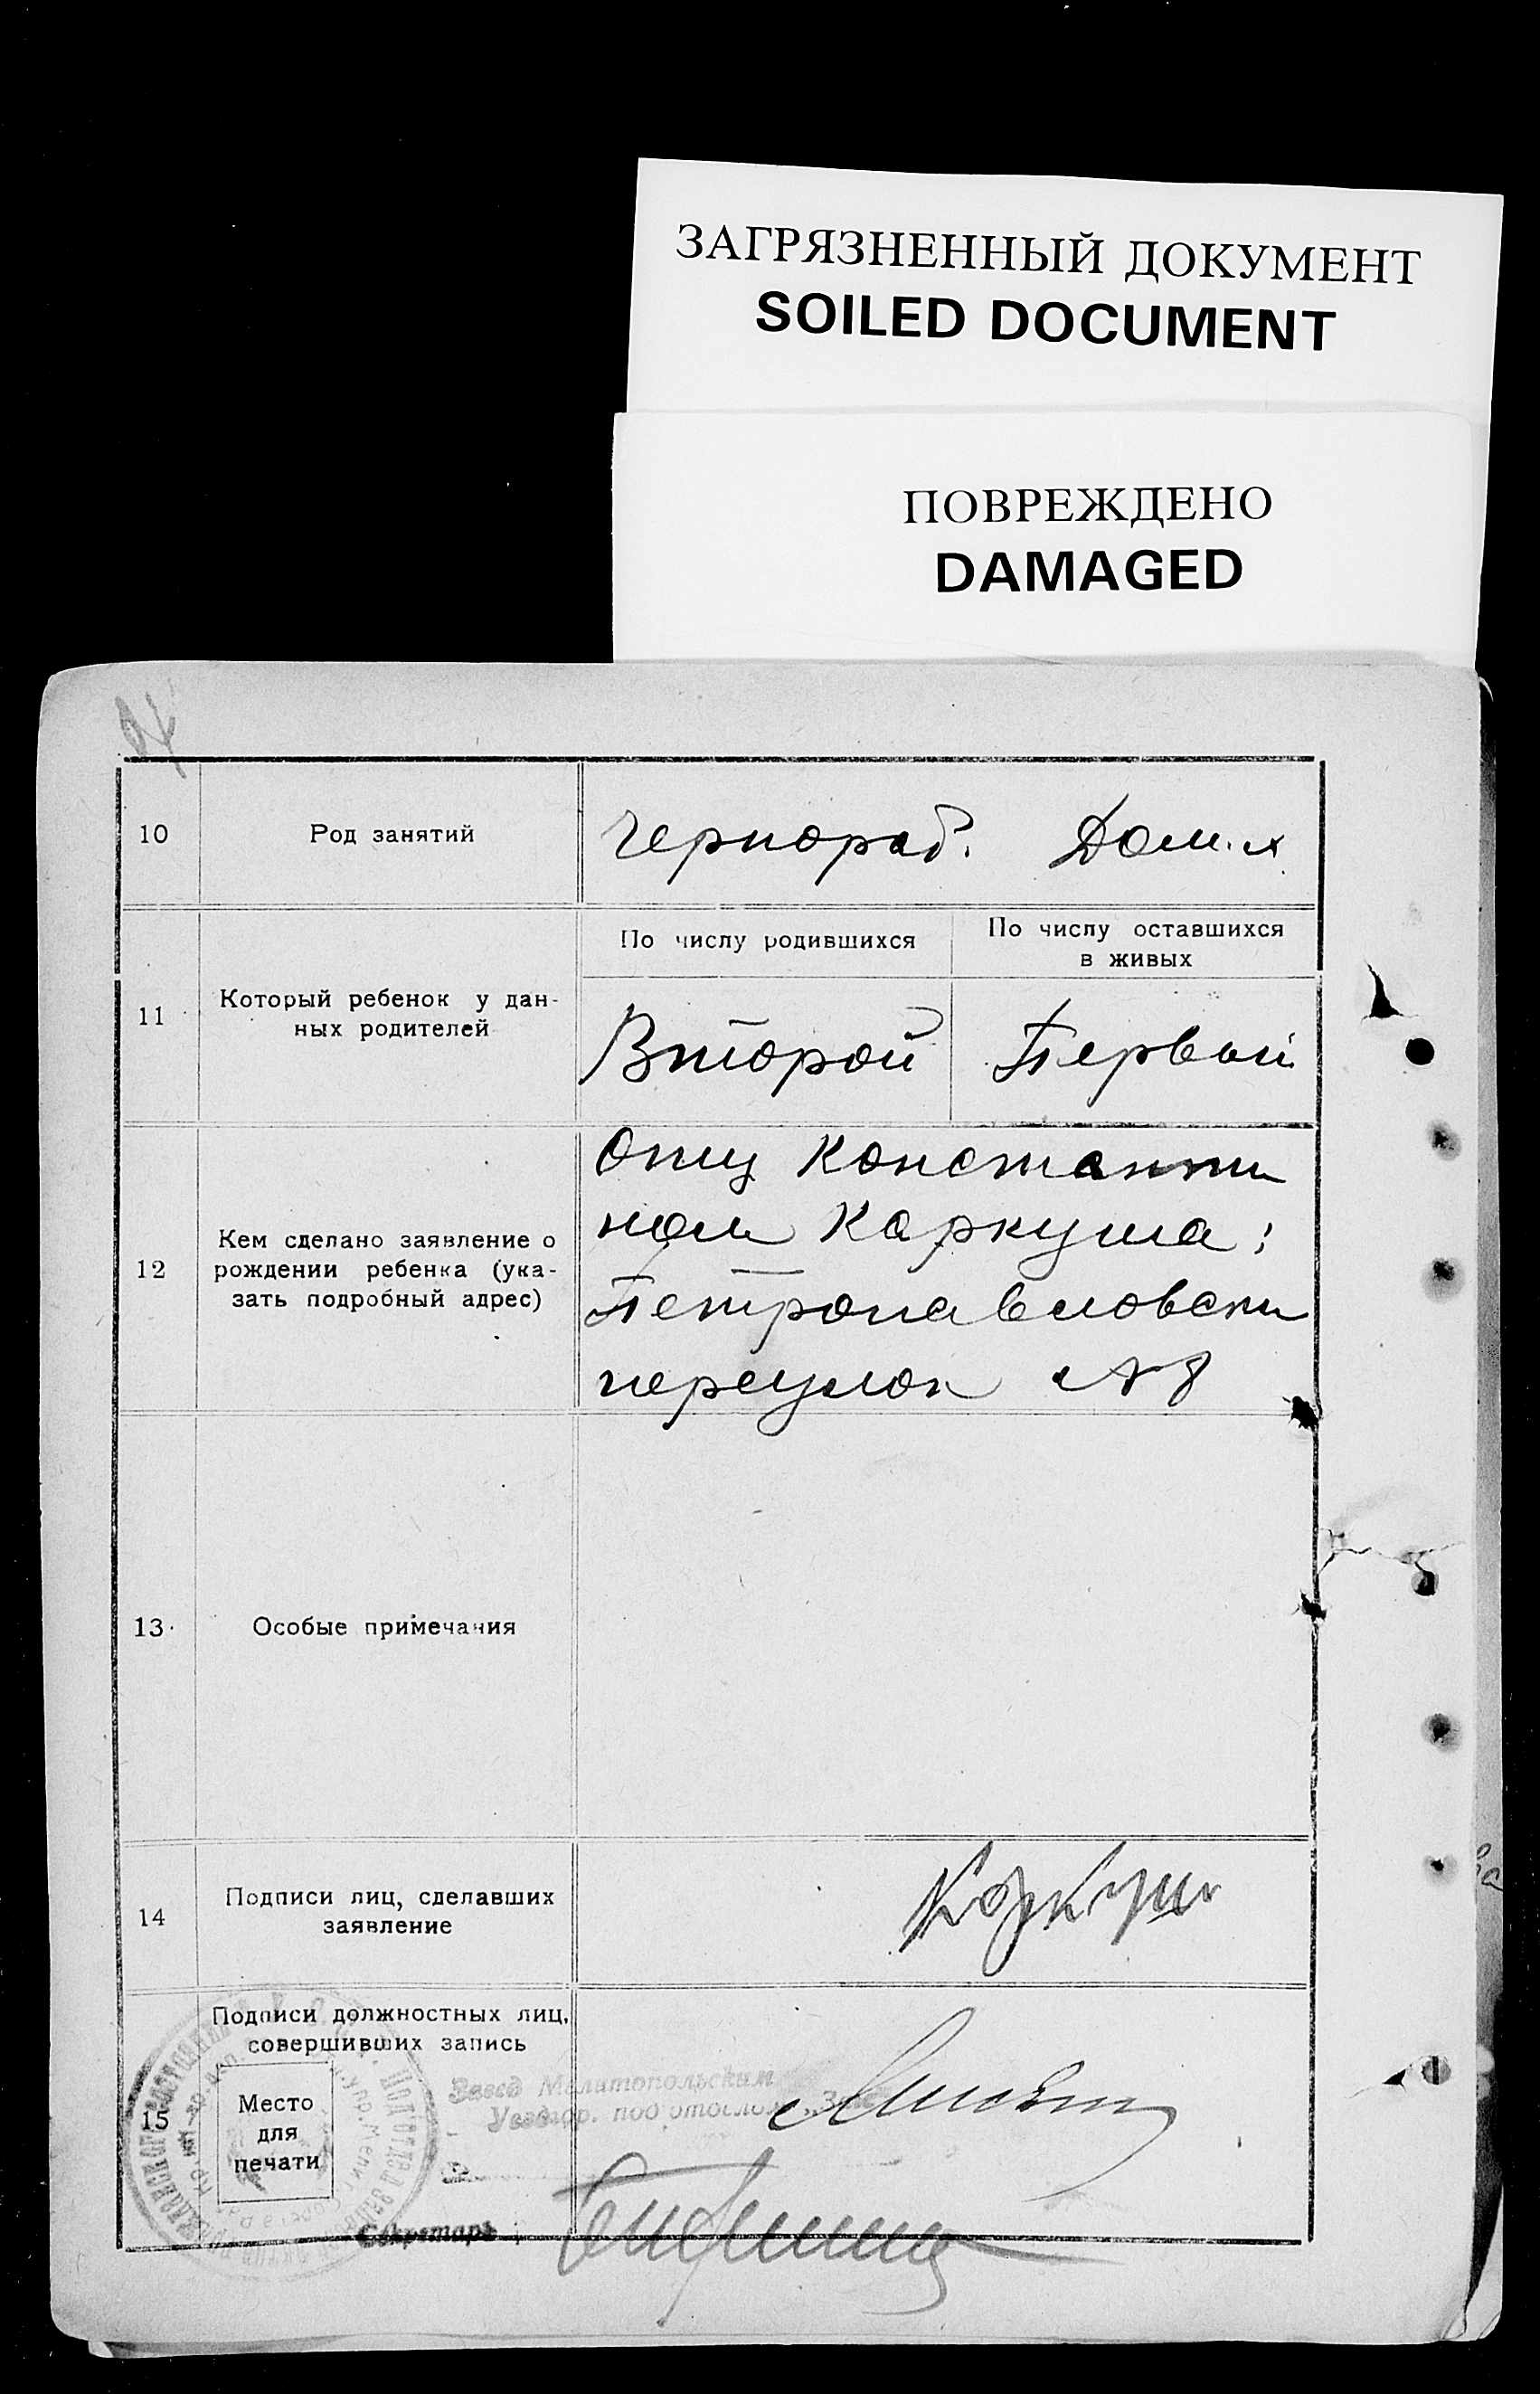 ЗАГРЯЗНЕННЫЙ ДОКУМЕНТ
SOILED DOCUMENT
ПОВРЕЖДЕНО
DAMAGED
10 Род занятий Чернораб. Дом.х
11 Который ребенок у дан-
ных родителей
По числу родившихся
По числу оставшихся
в живых
Второй Первый
12 Кем сделано заявление о
рождении ребенка (ука-
зать подробный адрес)
Отец Константи
ном Каркуша:
Петропавловски
переулок №8
13 Особые примечания
14 Подписи лиц, сделавших
заявление
Коркуш
15 Подписи должностных лиц,
совершивших запись
Место
для
печати
Завед Мелитопольским
под отделом
Секретарь